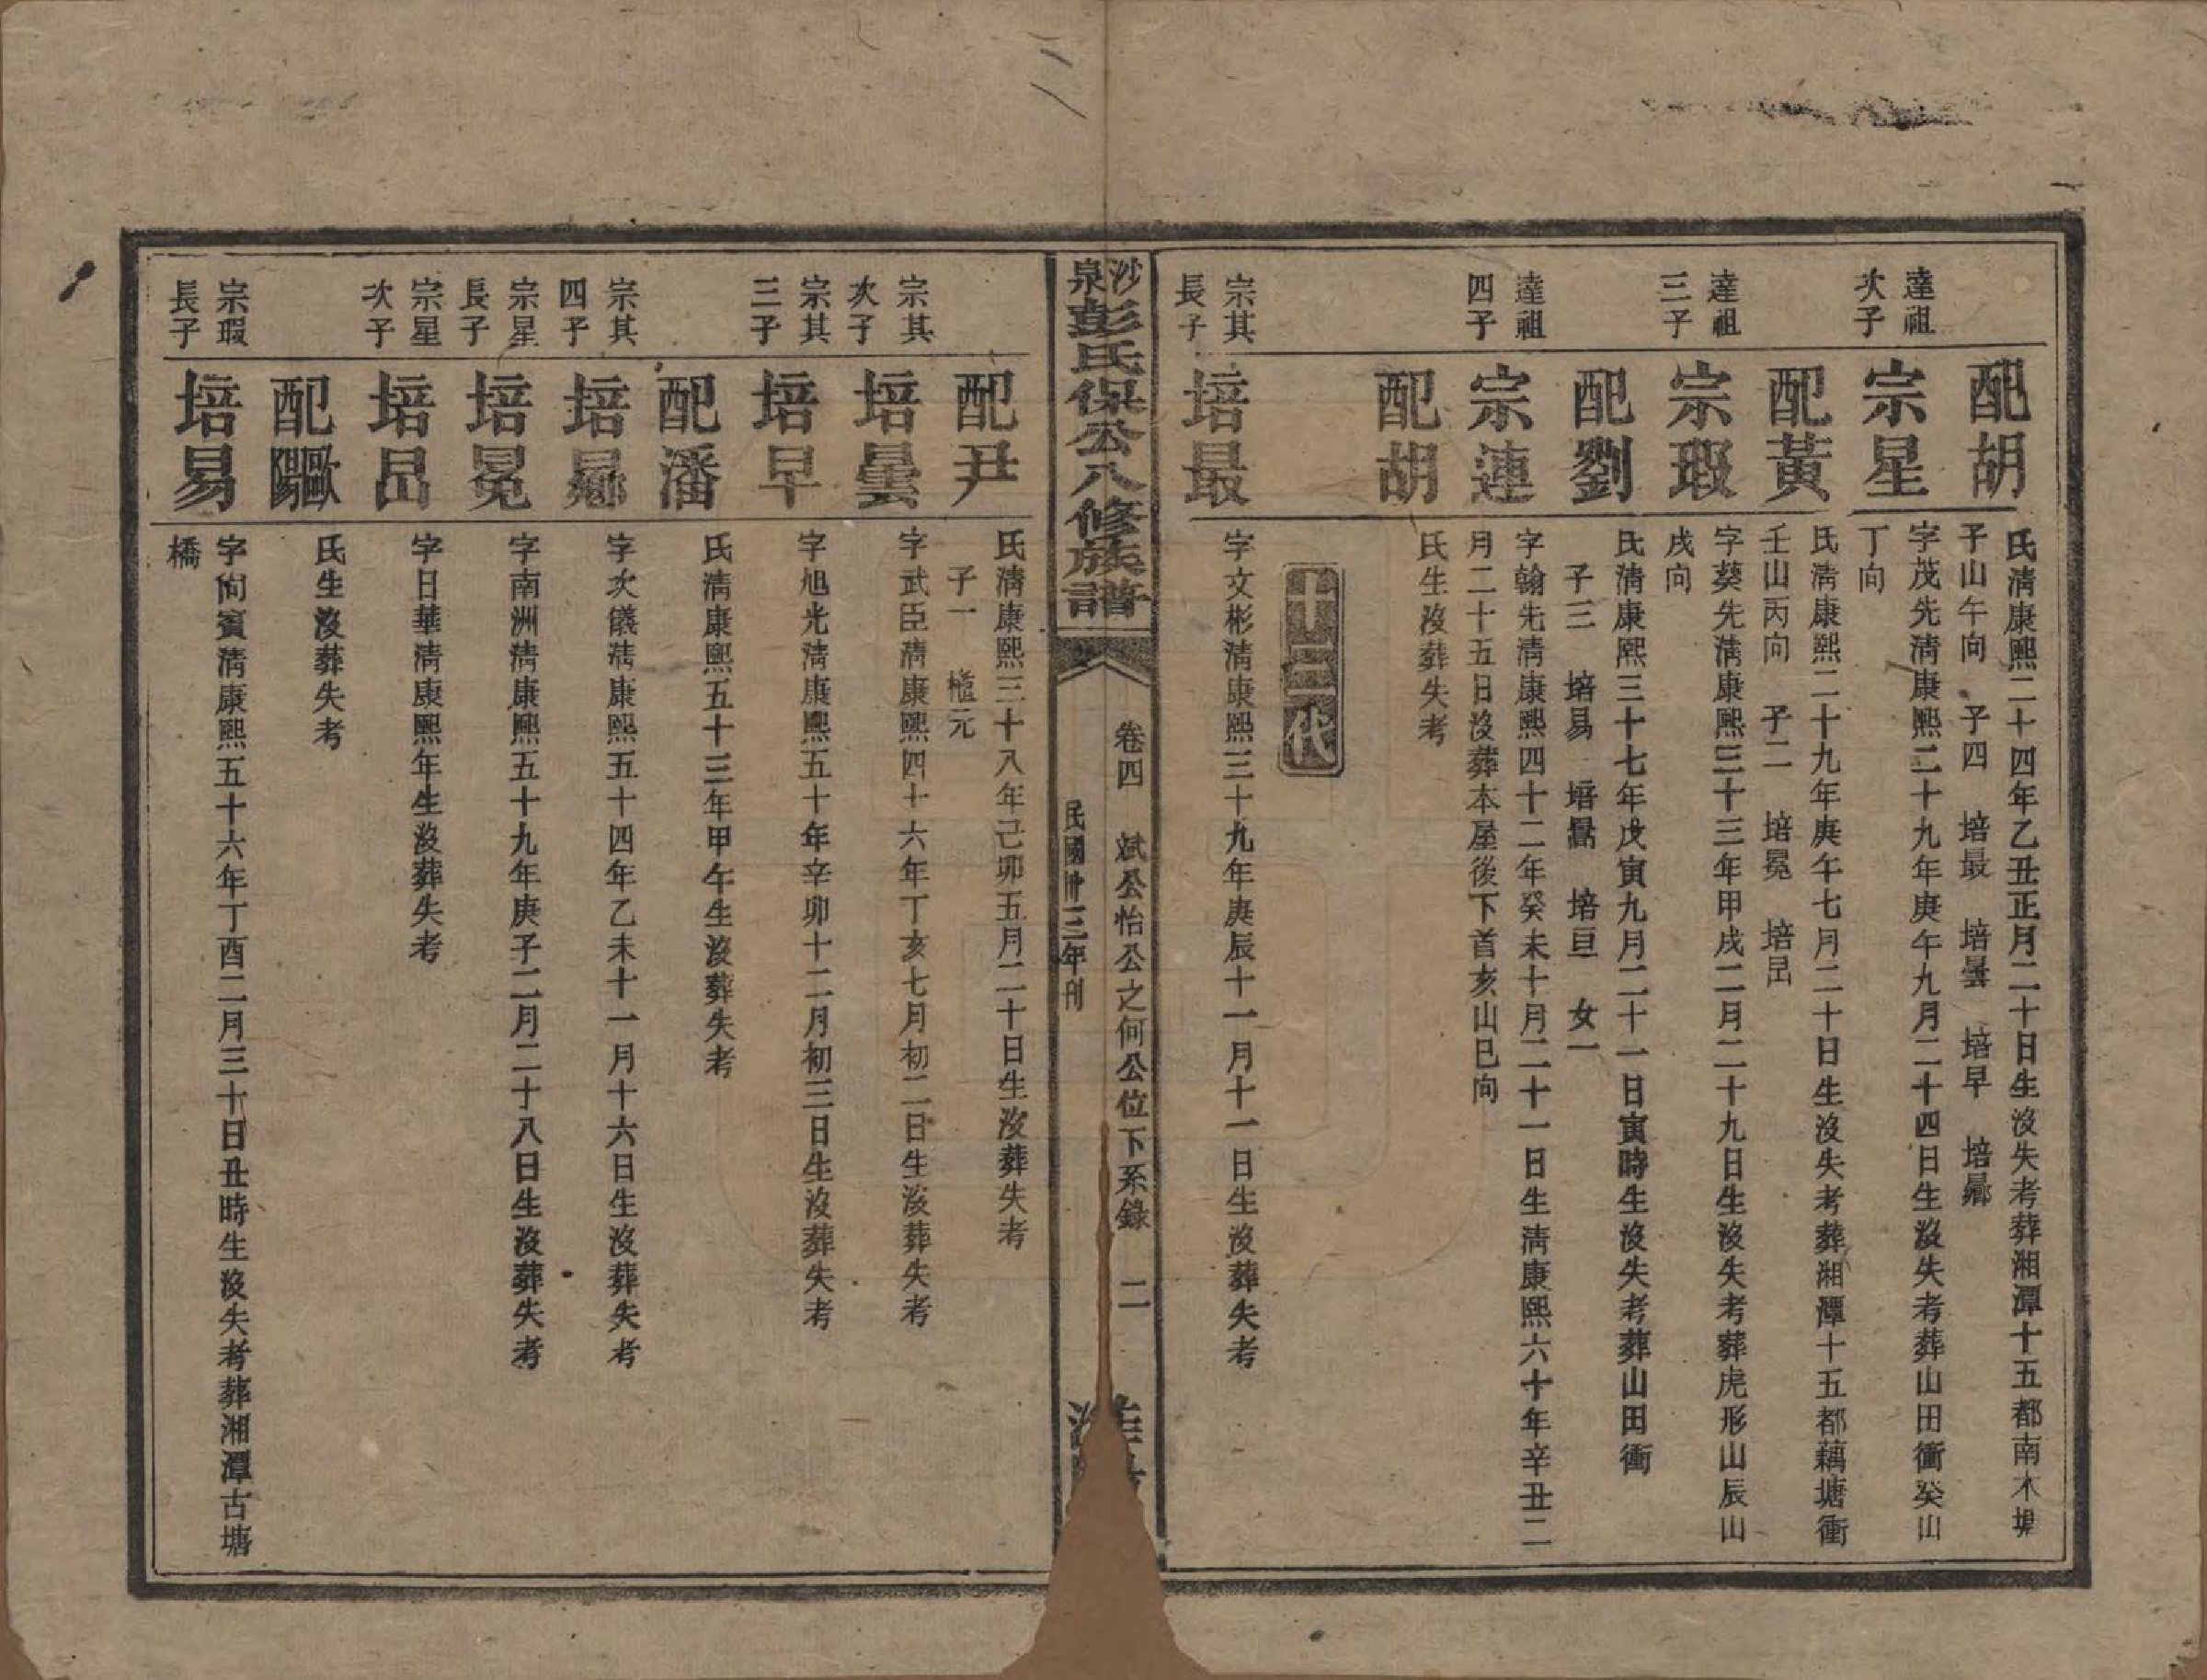 配胡
氏淸康熙二十四年乙丑正月二十日生沒失考葬湘潭十五都南木堤
子山午向 子四 培最 培曇 培早 培曏
達祖次子
宗星
字茂先淸康熙二十九年庚午九月二十四日生沒失考葬山田衝癸山
丁向
配黃
氏淸康熙二十九年庚午七月二十日生沒失考葬湘潭十五都藕塘衝
壬山丙向 子二 培冕 培昂
達祖三子
宗瑕
字葵先淸康熙三十三年甲戌二月二十九日生沒失考葬虎形山辰山
戌向
配劉
氏淸康熙三十七年戊寅九月二十一日寅時生沒失考葬山田衝
子三 培易 培昺 培亘 女一
達祖四子
宗連
字翰先淸康熙四十二年癸未十月二十一日生淸康熙六十年辛丑二
月二十五日沒葬本屋後下首亥山巳向
配胡
氏生沒葬失考
十二代
宗其長子
培最
字文彬淸康熙三十九年庚辰十一月十一日生沒葬失考
沙泉彭氏保公八修族譜
卷四 斌公怡公之何公位下系錄 二
民國卅三年刊
配尹
氏淸康熙三十八年己卯五月二十日生沒葬失考
子一 權元
宗其次子
培曇
字武臣淸康熙四十六年丁亥七月初二日生沒葬失考
宗其三子
培早
字旭光淸康熙五十年辛卯十二月初三日生沒葬失考
配潘
氏淸康熙五十三年甲午生沒葬失考
宗其四子
培曏
字次儀淸康熙五十四年乙未十一月十六日生沒葬失考
宗星長子
培冕
字南洲淸康熙五十九年庚子二月二十八日生沒葬失考
宗星次子
培昂
字日華淸康熙年生沒葬失考
配歐陽
氏生沒葬失考
宗瑕長子
培易
字尙賓淸康熙五十六年丁酉二月三十日丑時生沒失考葬湘潭古塘
橋